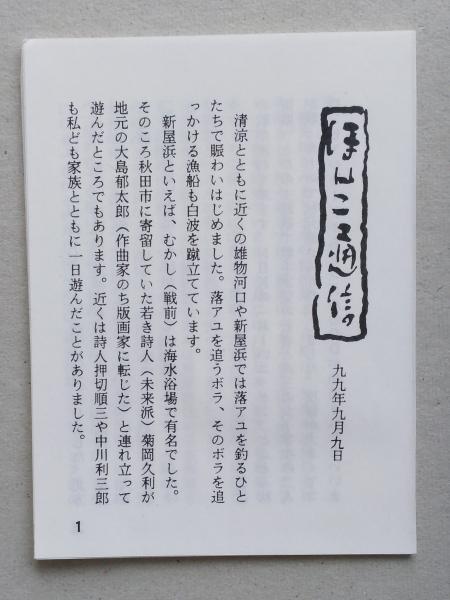 ほんこ通信
九九年九月九日
清涼とともに近くの雄物河口や新屋浜では落アユを釣るひと
たちで賑わいはじめました。落アユを追うボラ、そのボラを追
っかける漁船も白波を蹴立てています。
新屋浜といえば、むかし（戦前）は海水浴場で有名でした。
そのころ秋田市に寄留していた若き詩人（未来派）菊岡久利が
地元の大島郁太郎（作曲家のち版画家に転じた）と連れ立って
遊んだところでもあります。近くは詩人押切順三や中川利三郎
も私ども家族とともに一日遊んだことがありました。
1